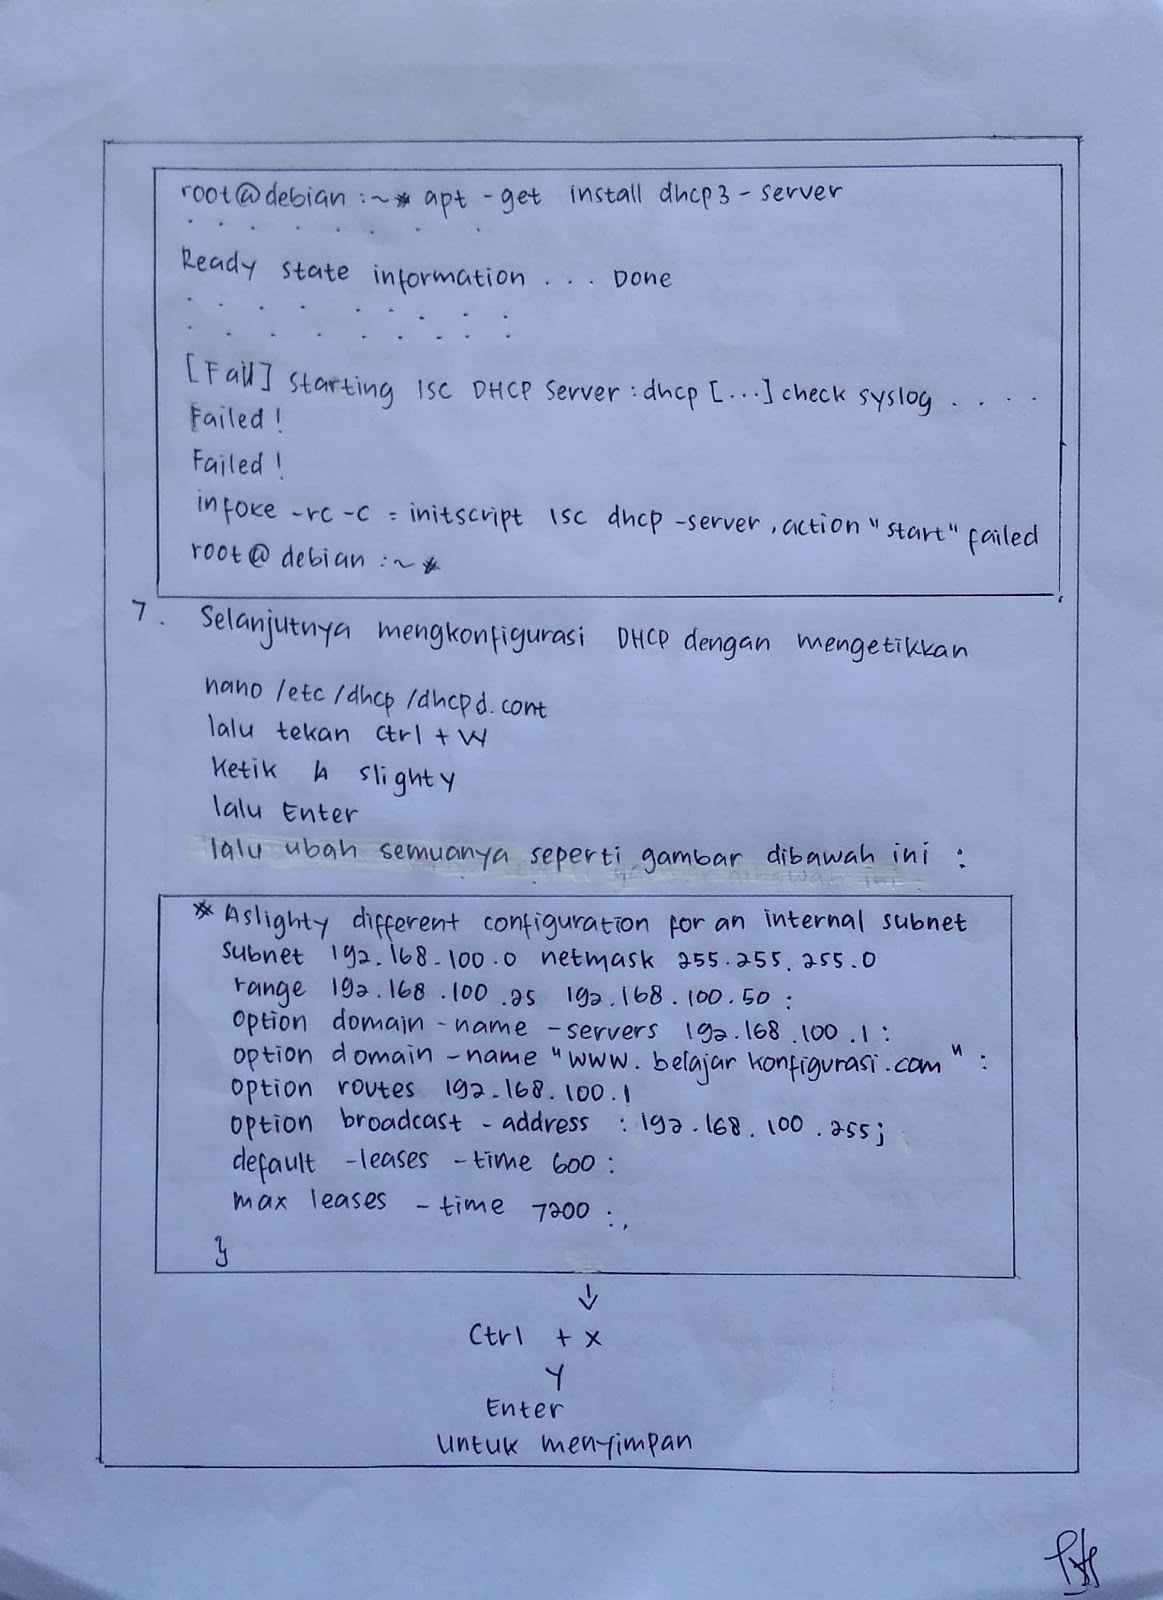 root@debian :~* apt -get install dhcp3 - server
. . . . . . . .
Ready state information . . . Done
. . . . . . . . .
. . . . . . . . .
[Fail] Starting ISC DHCP Server : dhcp [...] check syslog . . . .
Failed !
Failed !
infoke -rc -c = initscript ISC dhcp -server , action "start" failed
root@ debian :~ *
7. Selanjutnya mengkonfigurasi DHCP dengan mengetikkan
nano /etc /dhcp /dhcpd.cont
lalu tekan ctrl + W
Ketik A slighty
lalu Enter
lalu ubah semuanya seperti gambar dibawah ini :
* Aslighty different configuration for an internal subnet
subnet 192.168.100.0 netmask 255.255.255.0
range 192.168.100.25 192.168.100.50 :
option domain -name -servers 192.168.100.1 :
option domain -name "www. belajar konfigurasi.com" :
option routes 192.168.100.1
option broadcast - address : 192.168.100.255;
default -leases -time 600 :
max leases - time 7200 :,
}
↓
Ctrl + x
Y
Enter
Untuk menyimpan